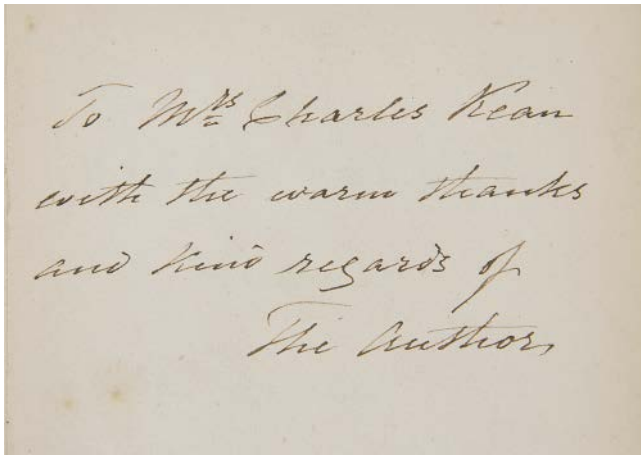 To Mrs Charles Kean
with the warm thanks
and kind regards of
The Author